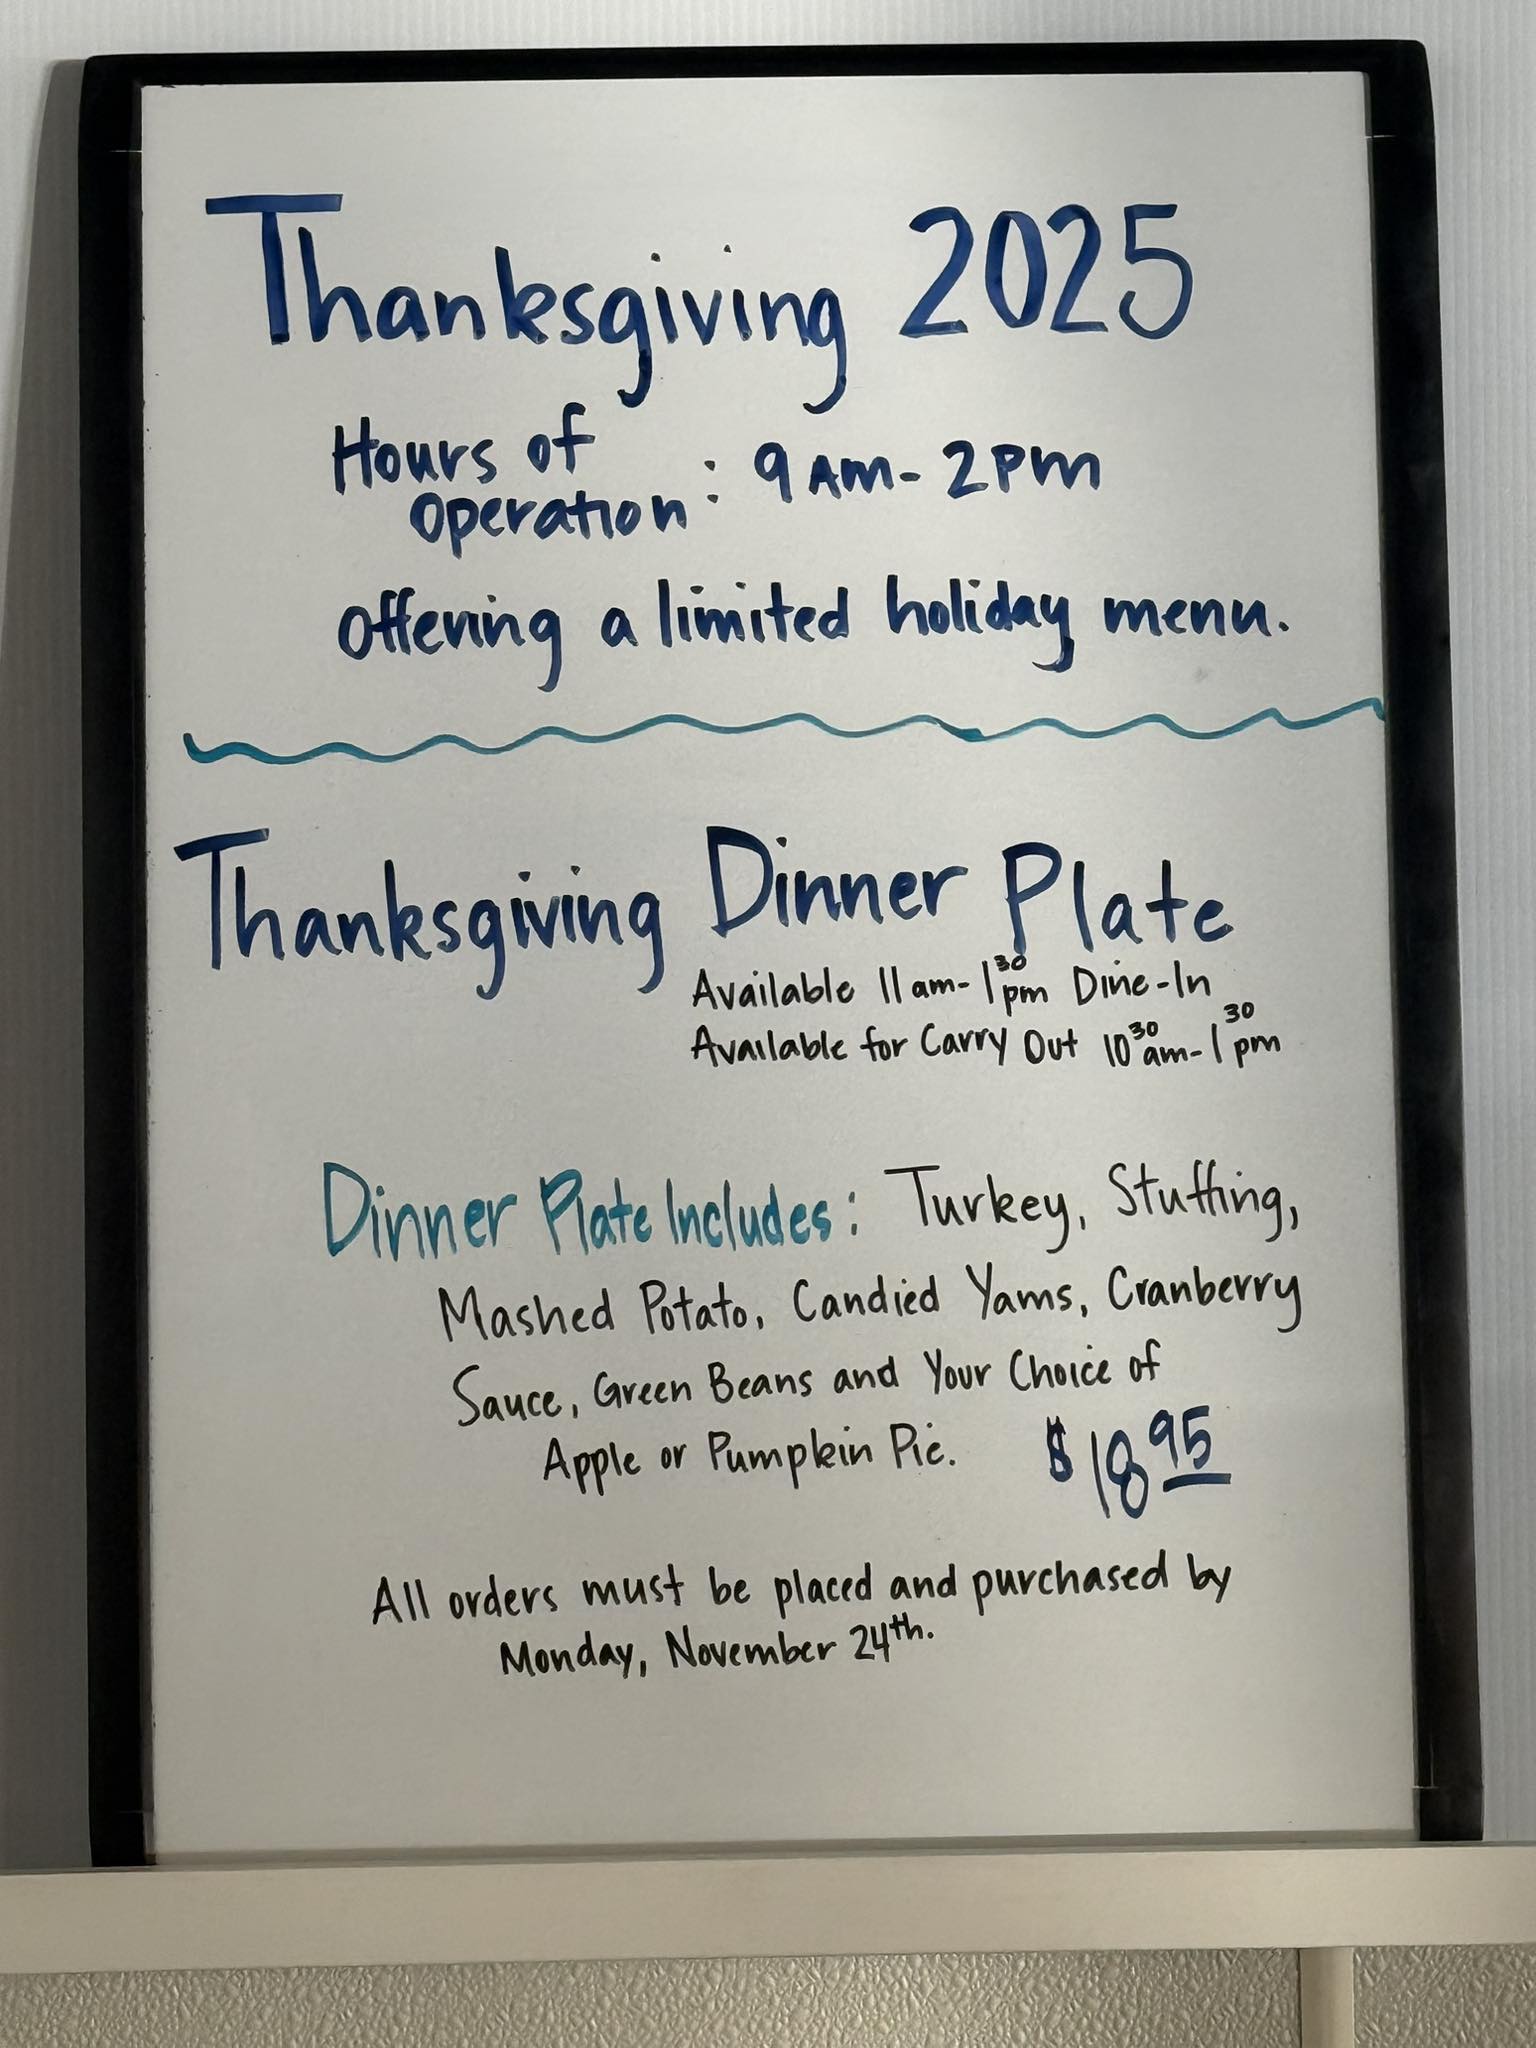 Thanksgiving 2025
Hours of
Operation : 9AM - 2PM
Offering a limited holiday menu.
Thanksgiving Dinner Plate
Available 11am - 1 30 pm Dine-In
Available for Carry Out 10 30 am - 1 30 pm
Dinner Plate Includes: Turkey, Stuffing,
Mashed Potato, Candied Yams, Cranberry
Sauce, Green Beans and Your Choice of
Apple or Pumpkin Pie. $18 95
All orders must be placed and purchased by
Monday, November 24th.